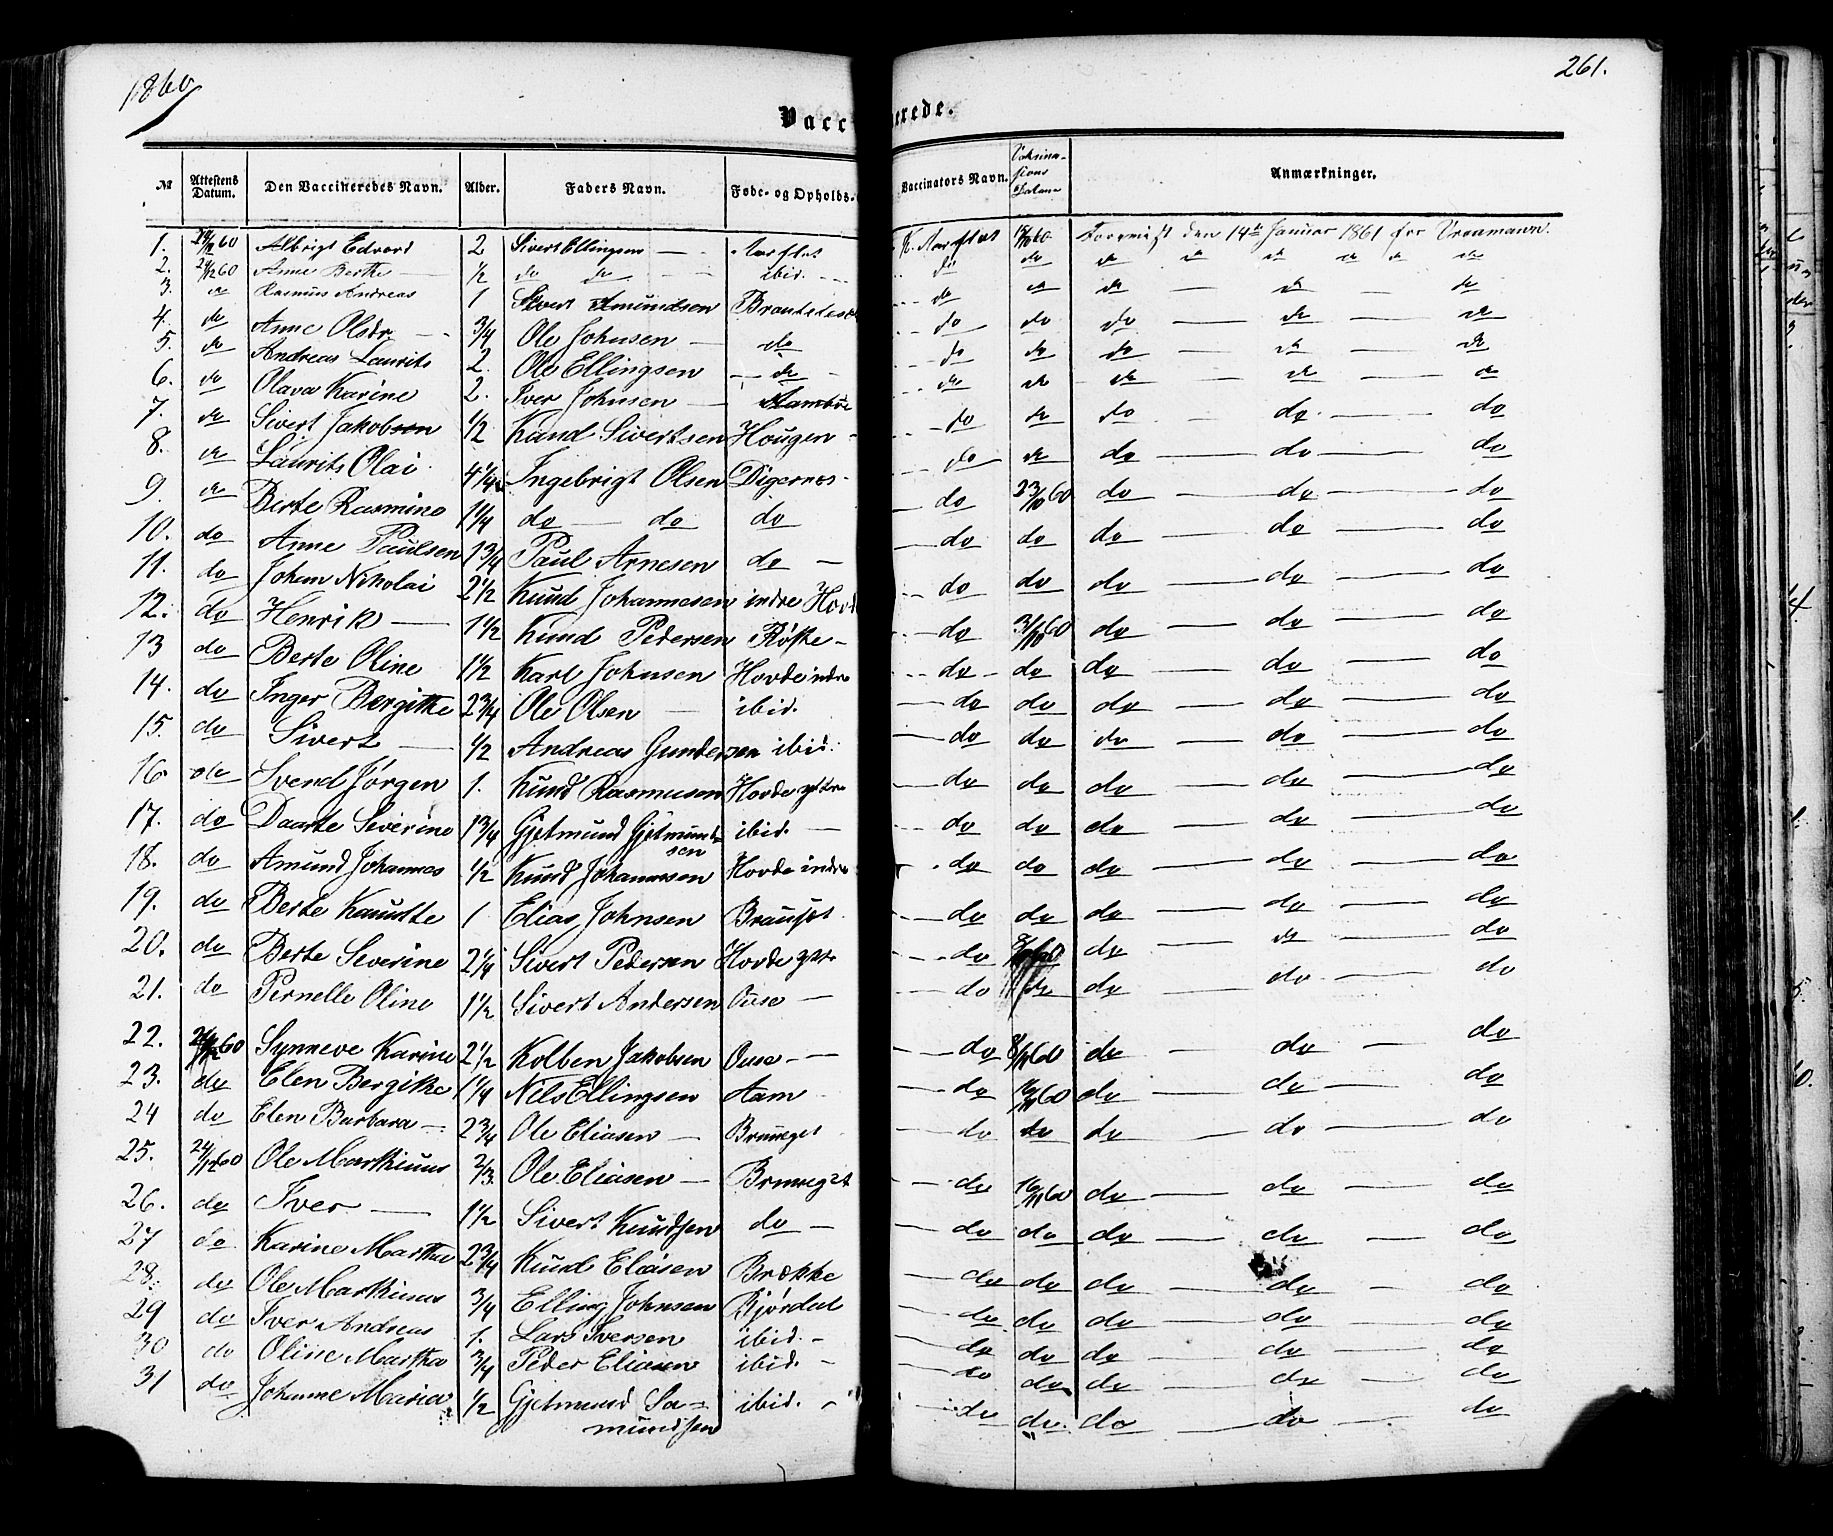 1860
261.
Vacc erede.
№ Attestens Datum. Den Vaccineredes Navn. Alder. Faders Navn. Føde- og Opholds- Vaccinators Navn. Vaksina-sions Datum Anmærkninger.
1. 24/12 60 Albrigt Edvard 2 Sivert Ellingsen — Aarflot K. Aarflot Foreviist den 14de Januar 1861 for
2. 24/12 60 Anne Berthe — 1/2 do do ibid. — do do do do do do do do
3. do Rasmus Andreas 1 Sivert Amundsen do do do — do — do
4. do Anne Oldr. — 3/4 Ole Johnsen — do do do do — do — do
5. do Andreas Laurits 2. Ole Ellingsen — do — do do do — do — do
6. do Olava Karine 2. Iver Johnsen — do do do — do — do
7. do Sivert Jakobsen 1/2 Knud Sivertsen Hougen - do do do — do — do
8. do Laurits Olai 4 1/4 Ingebrigt Olsen Digernes - do do do — do — do
9. do Berte Rasmine 1 1/4 do — do do do 23/10 60 do — do — do
10. do Anne Paulsen 1 3/4 Paul Arnesen do — do do do — do — do
11. do Johan Nikolai 2 1/2 Knud Johannesen indre Hovde do do do — do — do
12. do Henrik — 1 1/2 Knud Pedersen Røste - do 3/10 60 do — do — do
13 do Berte Oline 1 1/2 Karl Johnsen Hovde indre do - do do — do — do
14. do Inger Bergitte 2 3/4 Ole Olsen — ibid. do do do — do — do
15. do Sivert — 1/2 Andreas Gundersen ibid. do do do — do — do
16. do Svend Jørgen 1. Knud Rasmusen Hovde yttre do do do — do — do
17. do Daarte Severine 1 3/4 Gjetmund Gjetmund-sen ibid. — do do do — do — do
18. do Amund Johannes 1/2 Knud Johannesen Hovde indre do do do — do — do
19. do Berte Knudtte 1 Elias Johnsen do do do — do — do
20. do Berte Severine 2 1/4 Sivert Pedersen Hovde ytt. do 8/11 60 do do — do
21. do Pernelle Oline 1 1/2 Sivert Andersen Ouse — do do do do — do
22. 24/12 60 Synneve Karine 2 1/2 Kolben Jakobsen Ouse - — do 8/11 60 do - do — do
23. do Elen Bergitte 1 1/4 Nils Ellingsen Aam do 16/11 60 do — do — do
24 do Elen Barbara — 2 3/4 Ole Eliasen — do do do — do — do
25. 24/12 60 Ole Martinus 2/3 Ole Eliasen — do 16/11 60 do — do — do
26. do Iver — 1 1/2 Sivert Knudsen do — do do do — do — do
27 do Karine Martha 2 3/4 Knud Eliasen Brække do do do — do — do
28. do Ole Martinus 3/4 Elling Johnsen Bjørdal do do do — do — do
29 do Iver Andreas 1. Lars Iversen ibid. - do do do — do — do
30 do Oline Martha 3/4 Peder Eliasen ibid. - do do do — do — do
31 do Johanne Maria 1/2 Gjetmund Sa-mundsen ibid. - do do. do — do — do